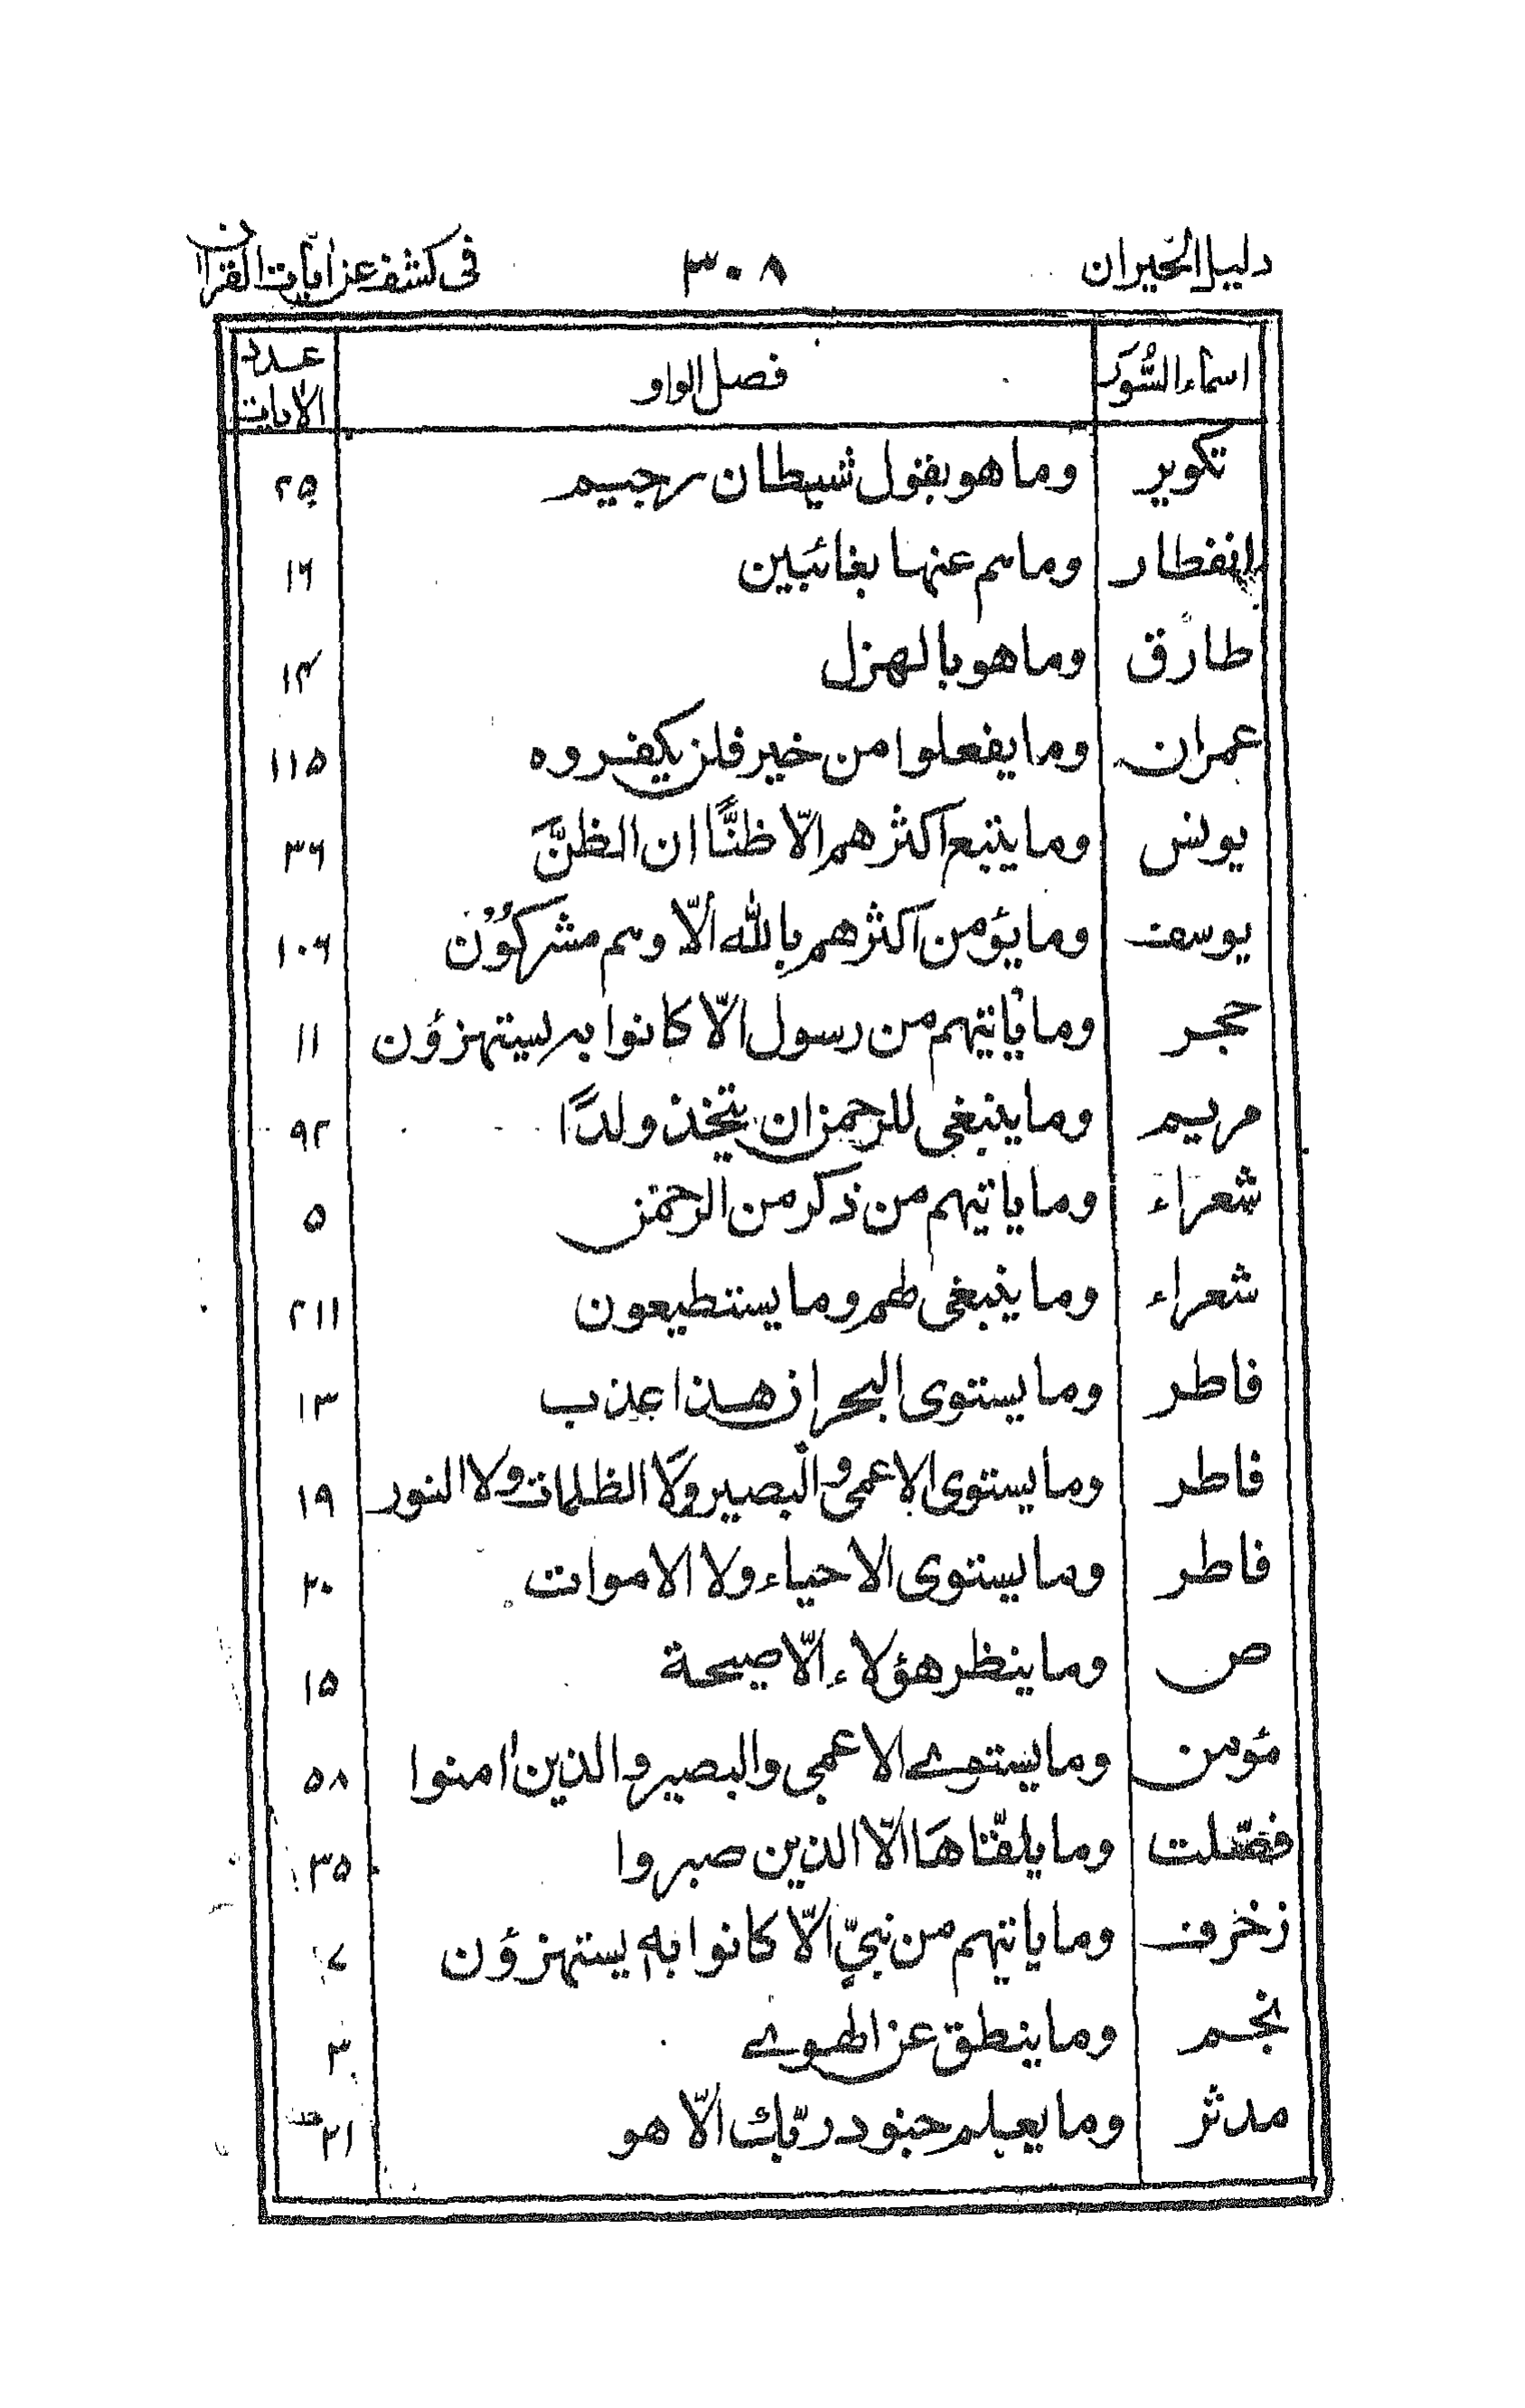 دليل الحيران ٣٠٨ فى كشف عن ايات القران
اسماء السُّوَر فصل الواو عدد الايات
تكوير وما هو بقول شيطان رجيم ٢٥
انفطار وما هم عنها بغائبين ١٦
طارق وما هو بالهزل ١٤
عمران وما يفعلوا من خير فلن يكفروه ١١٥
يونس وما يتبع اكثرهم الّا ظنًّا ان الظنَّ ٣٦
يوسف وما يؤمن اكثرهم بالله الّا وهم مشركون ١٠٦
حجر وما ياتيهم من رسول الّا كانوا به يستهزؤن ١١
مريم وما ينبغى للرحمن ان يتخذ ولدًا ٩٢
شعراء وما ياتيهم من ذكر من الرحمن ٥
شعراء وما ينبغى لهم وما يستطيعون ٢١١
فاطر وما يستوى البحران هذا عذب ١٣
فاطر وما يستوى الاعمى والبصير ولا الظلمات ولا النور ١٩
فاطر وما يستوى الاحياء ولا الاموات ٢٠
ص وما ينظر هؤلاء الّا صيحة ١٥
مؤمن وما يستوے الاعمى والبصير والذين امنوا ٥٨
فصّلت وما يلقّاها الّا الذين صبروا ٣٥
زخرف وما ياتيهم من نبىّ الّا كانوا به يستهزؤن ٧
نجم وما ينطق عن الهوے ٣
مدثر وما يعلم جنود ربّك الّا هو ٢١